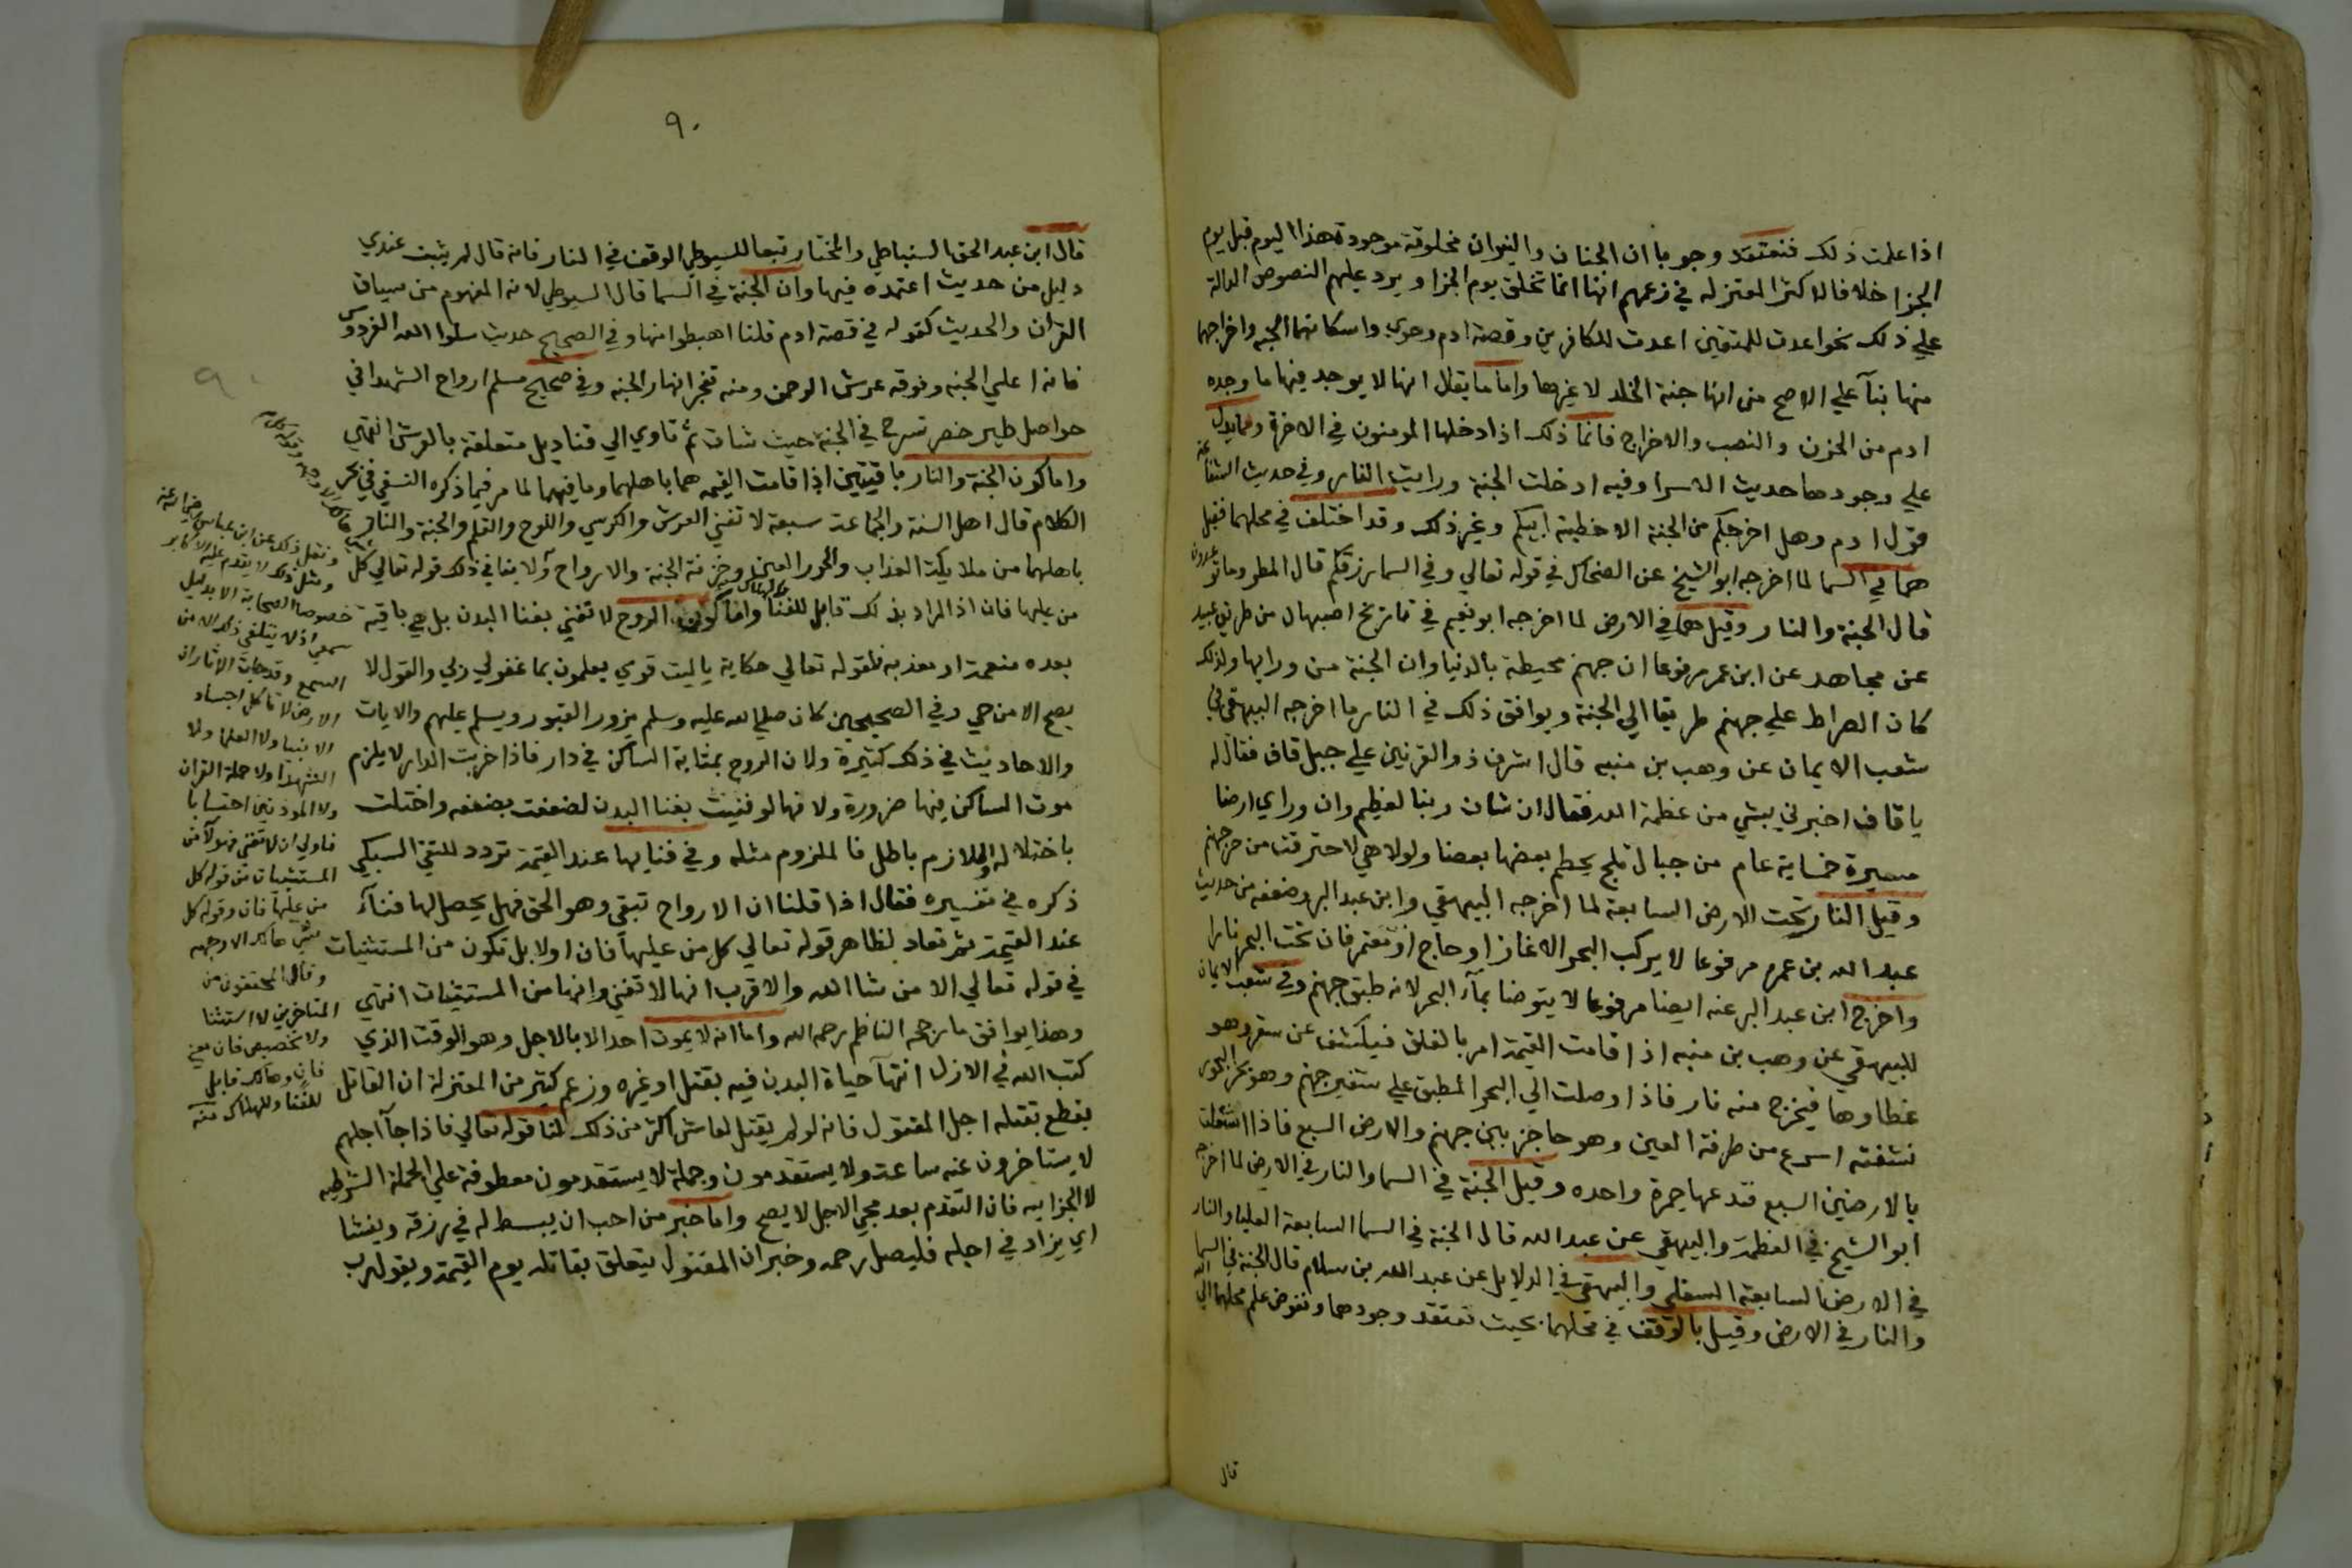 اذا علمت ذلك فنعتقد وجوبا ان الجنان والنيران مخلوقة موجودة هذا اليوم قبل يوم
الجزا خلافا لاكثر المعتزله في زعمهم انها انما تخلق يوم الجزا ويرد عليهم النصوص الدالة
علي ذلك نحو اعدت للمتقين اعدت للكافرين وقصة ادم وحوي واسكانهما الجنه واخراجهما
منها بنآ علي الاصح من انها جنة الخلد لا غيرها واما ما يقال انها لا يوجد فيها ما وجده
ادم من الحزن والنصب والاخراج فانما ذلك اذا دخلها المومنون في الاخرة ومما يدل
علي وجودهما حديث الاسرا وفيه ادخلت الجنة ورايت النار وفي حديث الشفاعة
قول ادم وهل اخرجكم من الجنة الا خطية ابيكم وغير ذلك وقد اختلف في محلهما فقيل
هما في السما لما اخرجه ابو الشيخ عن الضحاك في قوله تعالي وفي السما رزقكم قال المطر وما توعدون
قال الجنة والنار وقيل هما في الارض لما اخرجه ابو نعيم في تاريخ اصبهان من طريق عبيد
عن مجاهد عن ابن عمر مرفوعا ان جهنم محيطة بالدنيا وان الجنة من ورايها ولذلك
كان الصراط علي جهنم طريقا الي الجنة ويوافق ذلك في النار ما اخرجه البيهقي في
شعب الايمان عن وهب بن منبه قال اشرف ذو القرنين علي جبل قاف فقال له
يا قاف اخبرني بشي من عظمة الله فقال ان شان ربنا لعظيم وان وراي ارضا
مسيرة خمساية عام من جبال ثلج يحطم بعضها بعضا ولولا هي لاحترقت من حر جهنم
وقيل النار تحت الارض السابعة لما اخرجه البيهقي وابن عبد البر وضعفه من حديث
عبد الله بن عمر مرفوعا لا يركب البحر الا غاز او حاج او معتمر فان تحت البحر نارا
واخرج ابن عبد البر عنه ايضا مرفوعا لا يتوضا بمآ البحر لانه طبق جهنم وفي شعب الايمان
للبيهقي عن وهب بن منبه اذا قامت القيمة امر بالفلق فيكشف عن سقر وهو
غطاوها فيخرج منه نار فاذا وصلت الي البحر المطبق علي شفير جهنم وهو بحر البحور
نشفته اسرع من طرفة العين وهو حاجز بين جهنم والارض السبع فاذا اشتعلت
بالارضين السبع فتدعها جمرة واحده وقيل الجنة في السما والنار في الارض لما اخرجه
ابو الشيخ في العظمة والبيهقي عن عبد الله قال الجنة في السما السابعة العليا والنار
في الارض السابعة السفلي والبيهقي في الدلايل عن عبد الله بن سلام قال الجنة في السما
والنار في الارض وقيل بالوقف في محلهما بحيث نعتقد وجودهما ونفوض علم محلهما الي الله
قال
٩٠
قال ابن عبد الحق السنباطي والمختار تبعا للسيوطي الوقف في النار فانه قال لم يثبت عندي
دليل من حديث اعتمده فيها وان الجنة في السما قال السيوطي لانه المفهوم من سياق
القران والحديث كقوله في قصة ادم قلنا اهبطوا منها وفي الصحيح حديث سلوا الله الفردوس
فانه اعلي الجنه وفوقه عرش الرحمن ومنه تفجر انهار الجنه وفي صحيح مسلم ارواح الشهدا في
حواصل طير خضر تسرح في الجنة حيث شات ثم تاوي الي قناديل متعلقة بالعرش انتهي
واما كون الجنة والنار باقيتين اذا قامت القيمه هما باهلهما وما فيهما لما مر فيما ذكره النسفي في بحر
الكلام قال اهل السنة والجماعة سبعة لا تفني العرش والكرسي واللوح والقلم والجنة والنار
باهلهما من ملايكة العذاب والحور العين وخزنة الجنة والارواح ولا ينافي ذلك قوله تعالي كل
من عليها فان اذ المراد بذلك قابل للفنا واما كون الروح لا تفني بفنا البدن بل هي باقية
بعده منعمة او معذبه فلقوله تعالي حكاية ياليت قومي يعلمون بما غفر لي ربي والقول لا
يصح الا من حي وفي الصحيحين كان صلي الله عليه وسلم يزور القبور ويسلم عليهم والايات
والاحاديث في ذلك كثيرة ولان الروح بمثابة الساكن في دار فاذا خربت الدار لا يلزم
موت الساكن فيها ضرورة ولانها لو فنيت بفنا البدن لضعفت بضعفه واختلت
باختلاله واللازم باطل فالملزوم مثله وفي فنايها عند القيمة تردد للتقي السبكي
ذكره في تفسيره فقال اذا قلنا ان الارواح تبقي وهو الحق فهل يحصل لها فنآء
عند القيمة ثم تعاد لظاهر قوله تعالي كل من عليها فان او لا بل تكون من المستثنيات
في قوله تعالي الا من شا الله والاقرب انها لا تفني وانها من المستثنيات انتهي
وهذا يوافق ما رجحه الناظم رحمه الله واما انه لا يموت احد الا بالاجل وهو الوقت الذي
كتب الله في الازل انتهآ حياة البدن فيه بقتل او غيره وزعم كثير من المعتزلة ان القاتل
يقطع بقتله اجل المقتول فانه لو لم يقتل لعاش اكثر من ذلك لنا قوله تعالي فاذا جآ اجلهم
لا يستاخرون عنه ساعة ولا يستقدمون وجملة لا يستقدمون معطوفة علي الجملة الشرطيه
لا الجزاييه فان التقدم بعد مجي الاجل لا يصح واما خبر من احب ان يبسط له في رزقه وينشا
اي يزاد في اجله فليصل رحمه وخبر ان المقتول يتعلق بقاتله يوم القيمة ويقول رب
ونقل ذلك عن ابن عباس رضي الله عنه
ومثل ذلك لا يقدم عليه الاكابر
خصوصا الصحابة الا بدليل
سمعي اذ لا يتلقي ذلك الا من
السمع وقد جات الاثار ان
الارض لا تاكل اجساد
الانبيا ولا العلما ولا
الشهدا ولا حملة القران
ولا الموذنين احتسابا
فاولي ان لا تفني فهولآ من
المستثنيات من قوله كل
من عليها فان وقوله كل
شي هالك الا وجهه
وقال المحققون من
المتاخرين لا استثنا
ولا تخصيص فان معني
فان وهالك قابل
للفنا وللهلاك منه